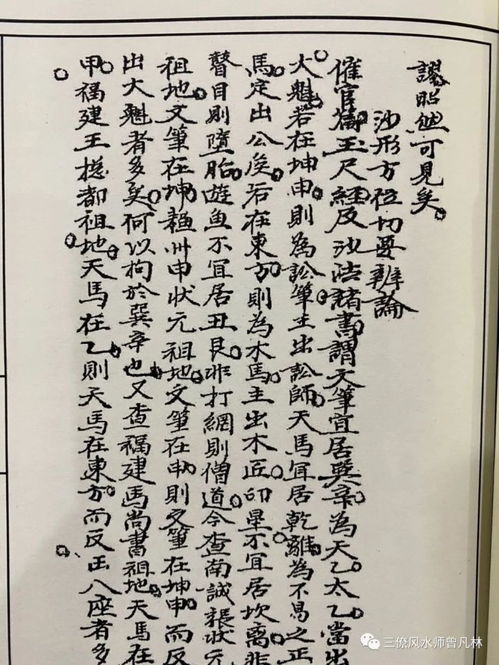 謬昭然可見矣
沙形方位切要辨論
催官篇玉尺經及沙法諸書謂文筆宜居巽辛為天乙太乙當出
大魁若在坤申則為訟筆主出訟師天馬宜居乾離為不易之正
馬定出公侯若在東方則為木馬主出木匠印星不宜居坎離非
瞽目則墮胎遊魚不宜居丑艮非打網則僧道今查南誠張狀元
祖地文筆在坤 州申狀元祖地文筆在申則文筆在坤申而反
出大魁者多矣何以拘於巽辛也又查福建馬尚書祖地天馬在
甲福建王總都祖地天馬在乙則天馬在東方而反出八座者多
三僚风水师曾凡林